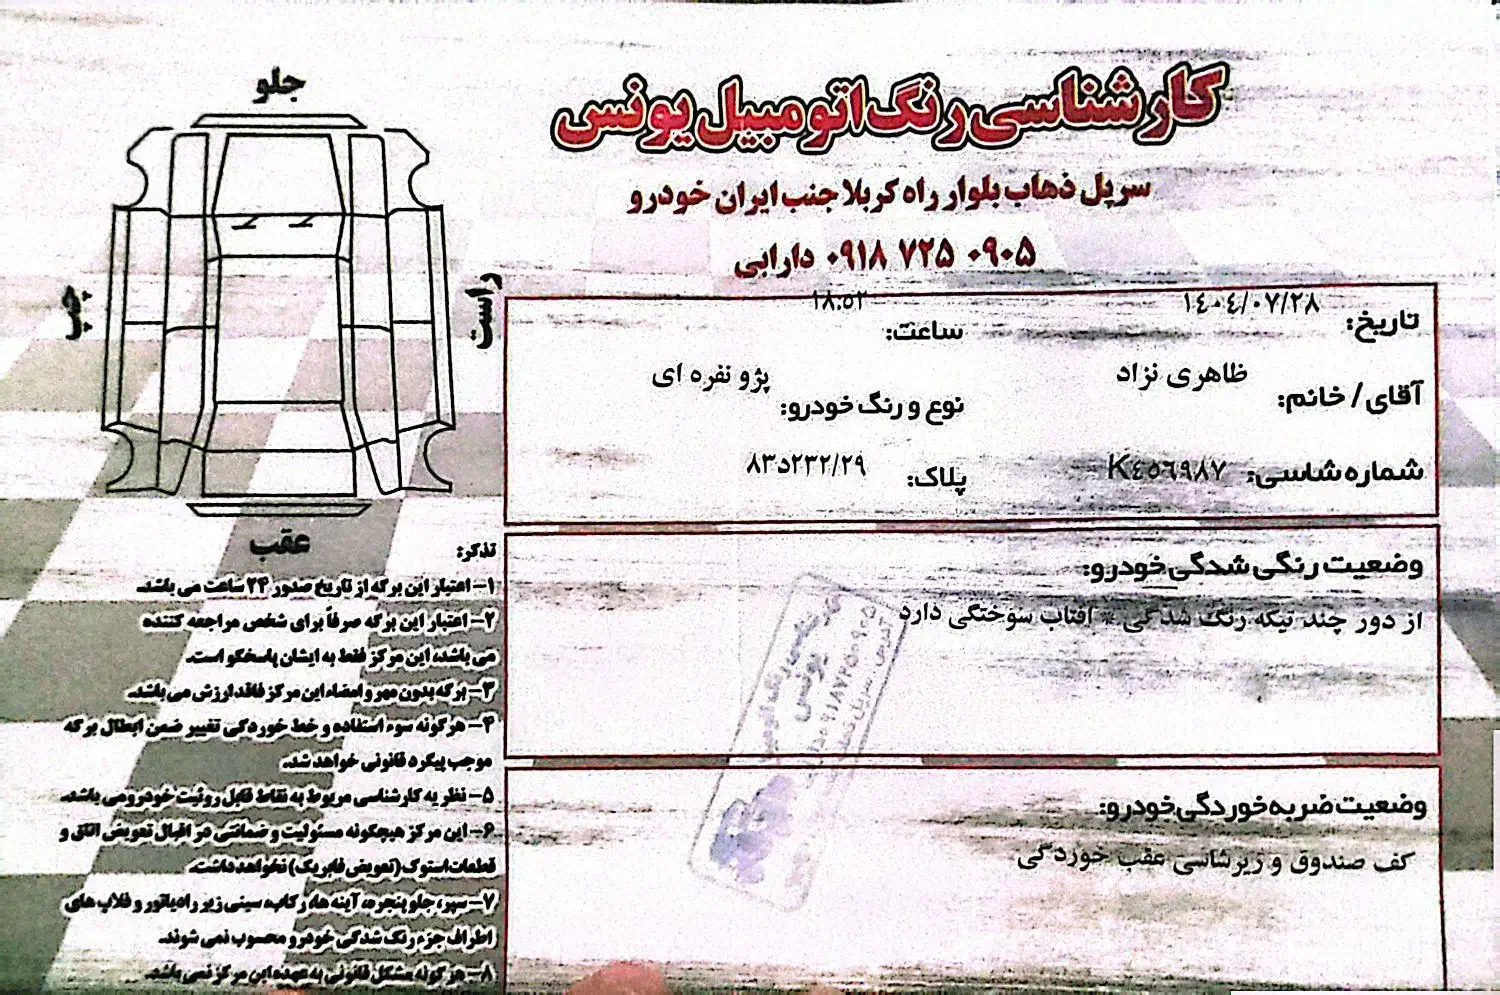 کارشناسی رنگ اتومبیل یونس
سرپل ذهاب بلوار راه کربلا جنب ایران خودرو
۰۹۱۸ ۷۲۵ ۰۹۰۵ دارابی
تاریخ: ۱۴۰۴/۰۷/۲۸
ساعت: ۱۸:۵۲
آقای / خانم: ظاهری نژاد
نوع و رنگ خودرو: پژو نفره ای
شماره شاسی: K۴۵۶۹۸۷
پلاک: ۸۳د۲۳۲/۲۹
وضعیت رنگی شدگی خودرو:
از دور چند تیکه رنگ شدگی * افتاب سوختگی دارد
وضعیت ضربه خوردگی خودرو:
کف صندوق و زیرشاسی عقب خوردگی
جلو
چپ
راست
عقب
تذکر:
۱- اعتبار این برگه از تاریخ صدور ۲۴ ساعت می باشد.
۲- اعتبار این برگه صرفاً برای شخص مراجعه کننده
می باشد، این مرکز فقط به ایشان پاسخگو است.
۳- برگه بدون مهر و امضاء این مرکز فاقد ارزش می باشد.
۴- هرگونه سوء استفاده و خط خوردگی تغییر ضمن ابطال برگه
موجب پیگرد قانونی خواهد شد.
۵- نظریه کارشناسی مربوط به نقاط قابل روئیت خودرو می باشد.
۶- این مرکز هیچگونه مسئولیت و ضمانتی در اقبال تعویض اتاق و
قطعات استوک (تعویض فابریک) نخواهد داشت.
۷- سپر، جلو پنجره، آینه ها، رکاب، سینی زیر رادیاتور و فلاپ های
اطراف جزء رنگ شدگی خودرو محسوب نمی شوند.
۸- هرگونه مشکل قانونی به عهده این مرکز نمی باشد.
یونس